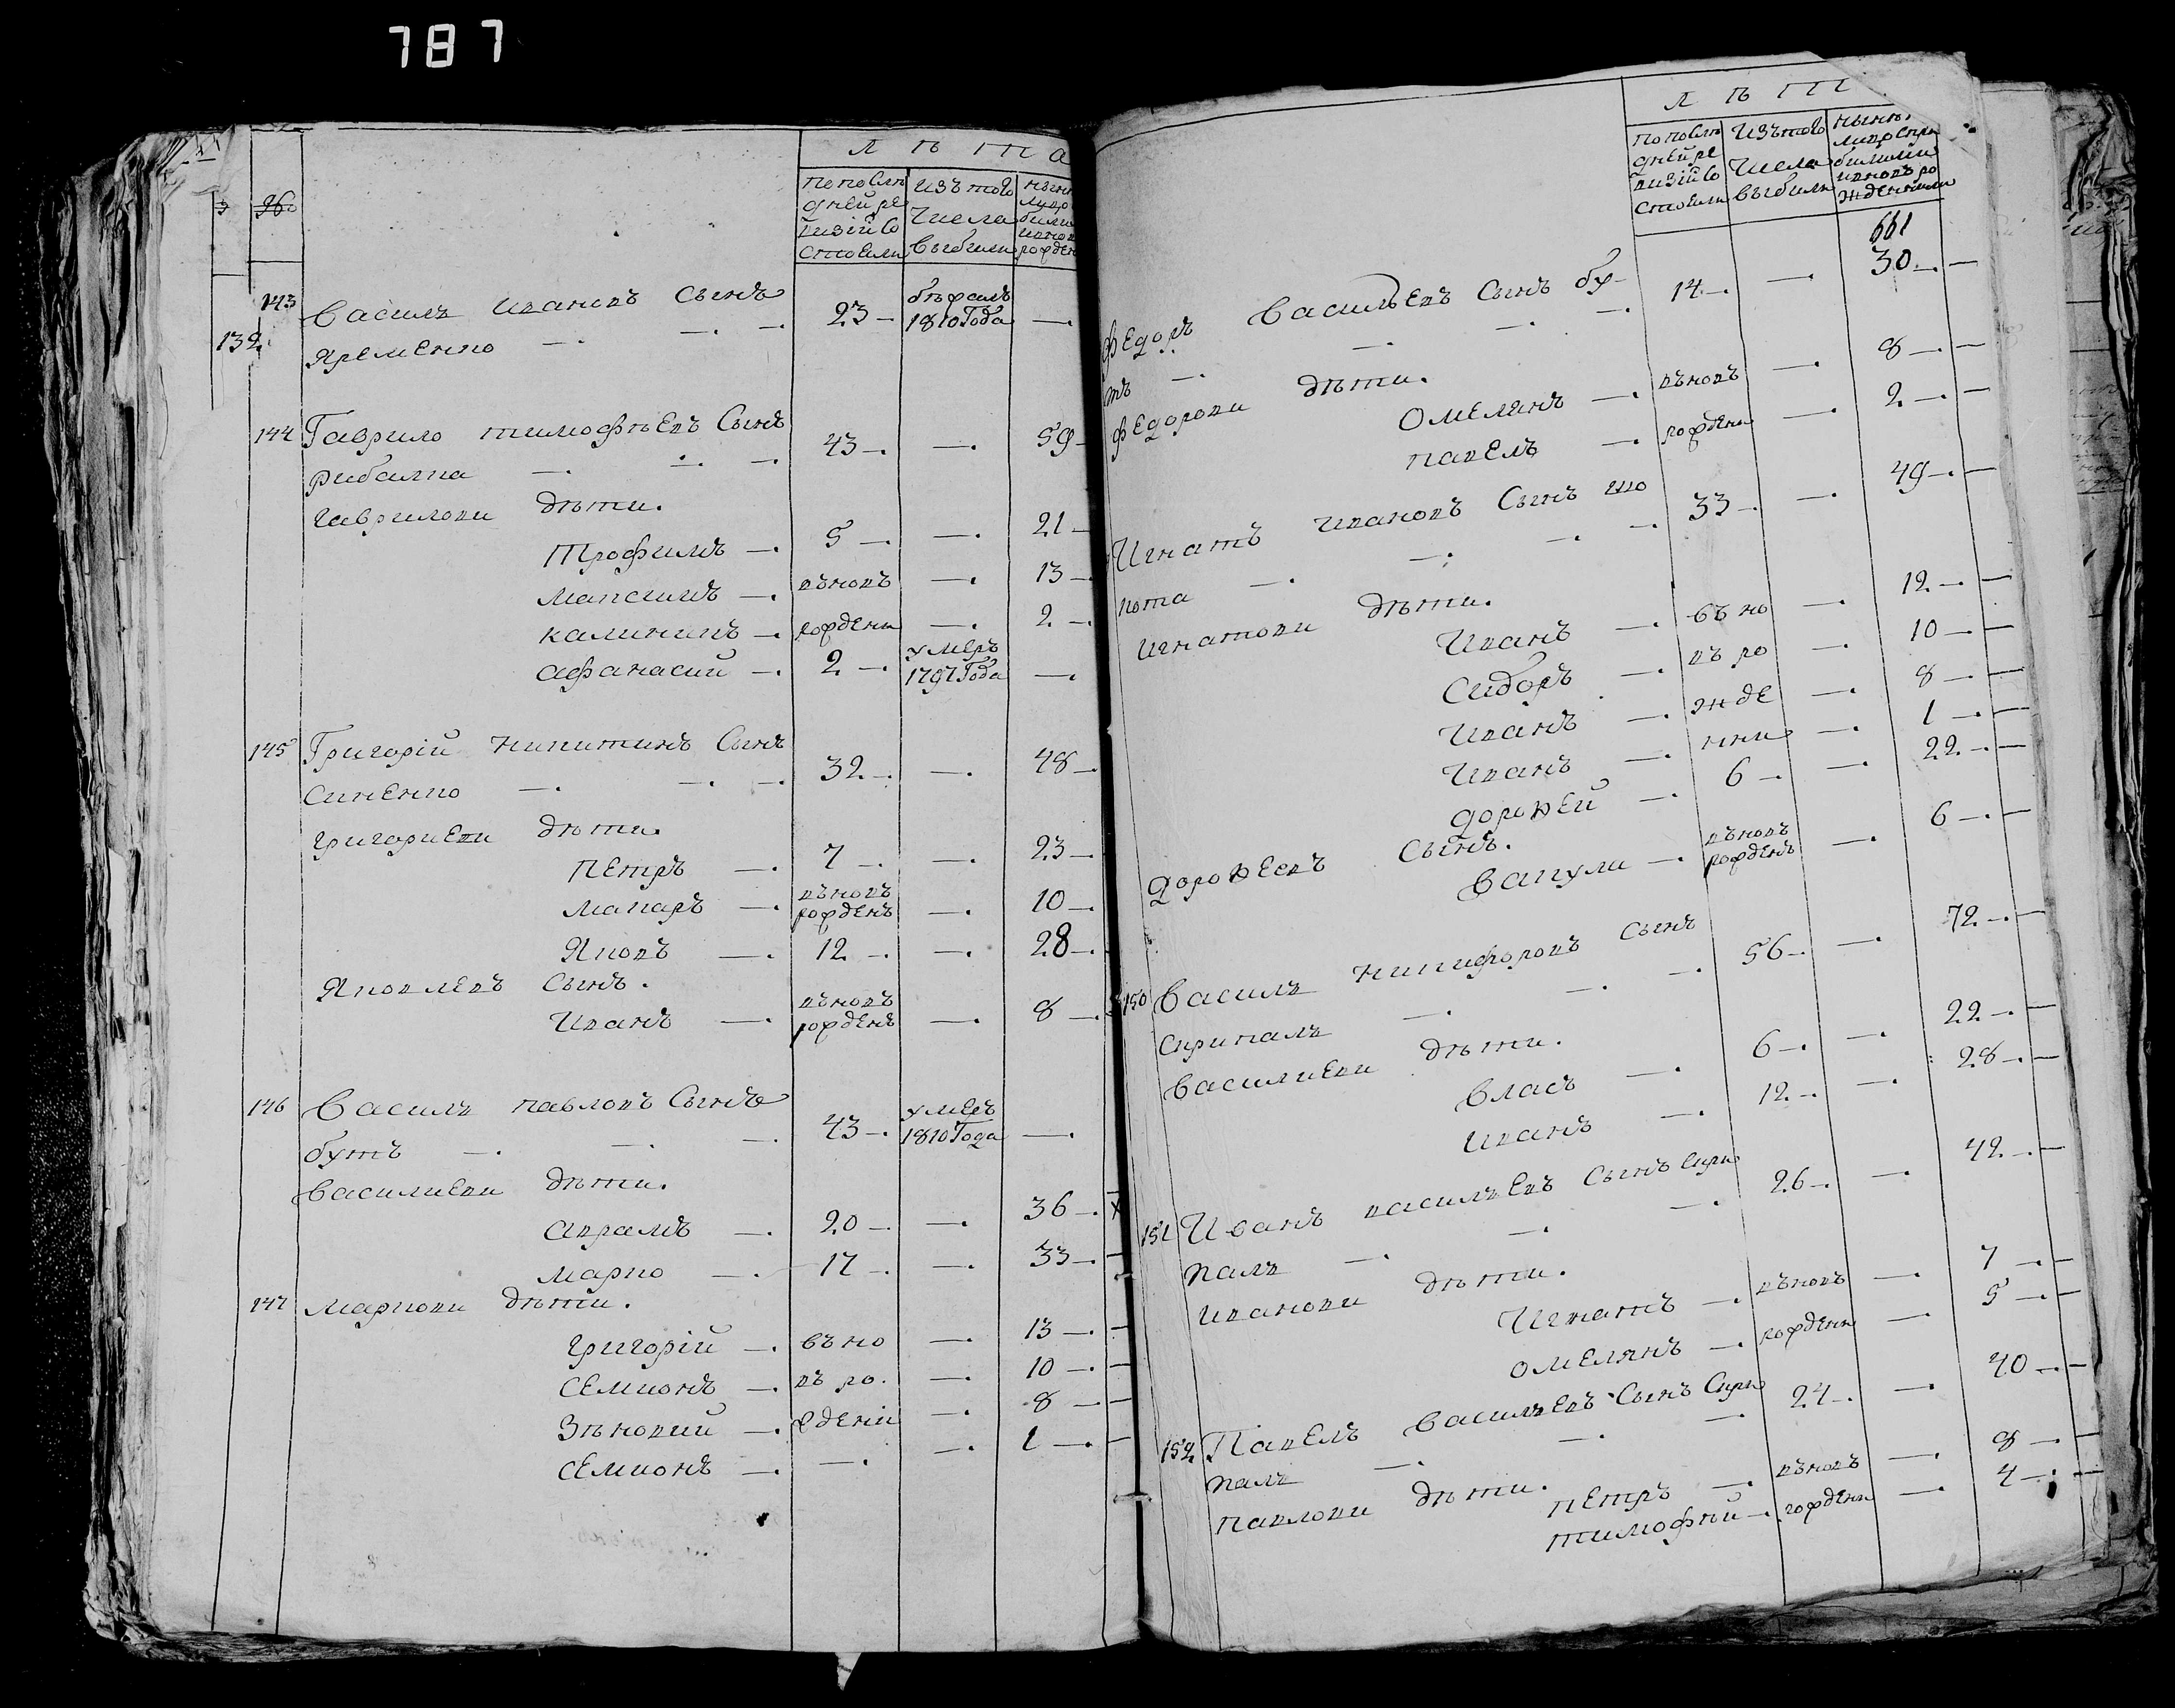 787
лѣта
по послѣ
дней ре
визіи со
стояли
изъ того
числа
выбыли
132
143
Василь Ивановъ Сынъ
Яременко —. —. —
23 —
бѣжалъ
1810 Года
—.
144 Гаврило Тимофѣевъ Сынъ
рибалка —. —. —
43 —. —. 59 —
Гавриловы дѣти.
Трофимъ —. 5 —. —. 21 —
Максимъ —. въновь —. 13 —.
Калиникъ —. рождены —. 2 —.
Афанасий —. 2 —.
умеръ
1797 Года
—.
145 Григорій Никитинъ Сынъ
Синенко —. —. —.
32 —. —. 48 —
Григориеви дѣти.
Петръ —. 7 —. —. 23 —
Макаръ —. въновь рожденъ —. 10 —.
Яковъ —. 12 —. —. 28 —.
Яковлевъ Сынъ.
Иванъ —. въновь рожденъ —. 8 —.
146 Василь Павловъ Сынъ
бутъ —. —. —.
43 —.
умеръ
1810 Года
—.
Василиеви дѣти.
Аврамъ —. 20 —. —. 36 —. х
Марко —. 17 —. —. 33 —. —
147 Маркови дѣти.
Григорій —. въно —. 13 —. —
Семионъ —. въ ро. —. 10 —. —
Зѣновий —. ждени —. 8 — —
Семионъ —. —. —. 1 —. —
лѣт
по послѣ
дней ре
визіи со
стояли
изъ того
числа
выбыли
661
Федоръ Васильевъ Сынъ бу-
тъ —. —. —. —.
14 —. —. 30 —. —
Федорови дѣти.
Омелянъ —. въновъ —. 8 —. —
Павелъ —. рождены —. 2 —. —
Игнатъ Ивановъ Сынъ шо
кота —. —. —. —.
33 —. —. 49 —. —
Игнатови дѣти.
Иванъ —. въ но —. 12 —. —
Сидоръ —. въ ро —. 10 —. —
Иванъ —. жде —. 8 —. —
Иванъ —. нни —. 1 —. —
Дорофей —. 6 —. —. 22 —. —
Дорофеевъ Сынъ.
Вакули —. въновъ рожденъ —. 6 —. —
150 Василь Никифоровъ Сынъ
Скрипаль —. —. —.
56 —. —. 72 —. —
Василиеви дѣти.
Власъ —. 6 —. —. 22 —. —
Иванъ —. 12 —. —. 28 —. —
151 Иванъ Васильевъ Сынъ Скри
паль —. —. —.
26 —. —. 42 —. —
Иванови дѣти.
Игнатъ —. въновъ —. 7 —. —
Омелянъ —. рождены —. 5 —. —
152 Павелъ Васильевъ Сынъ Скри
паль —. —. —.
24 —. —. 40 —. —
Павлови дѣти.
Петръ —. въновъ —. 8 —. —
Тимофѣй —. рождены —. 4 —. —